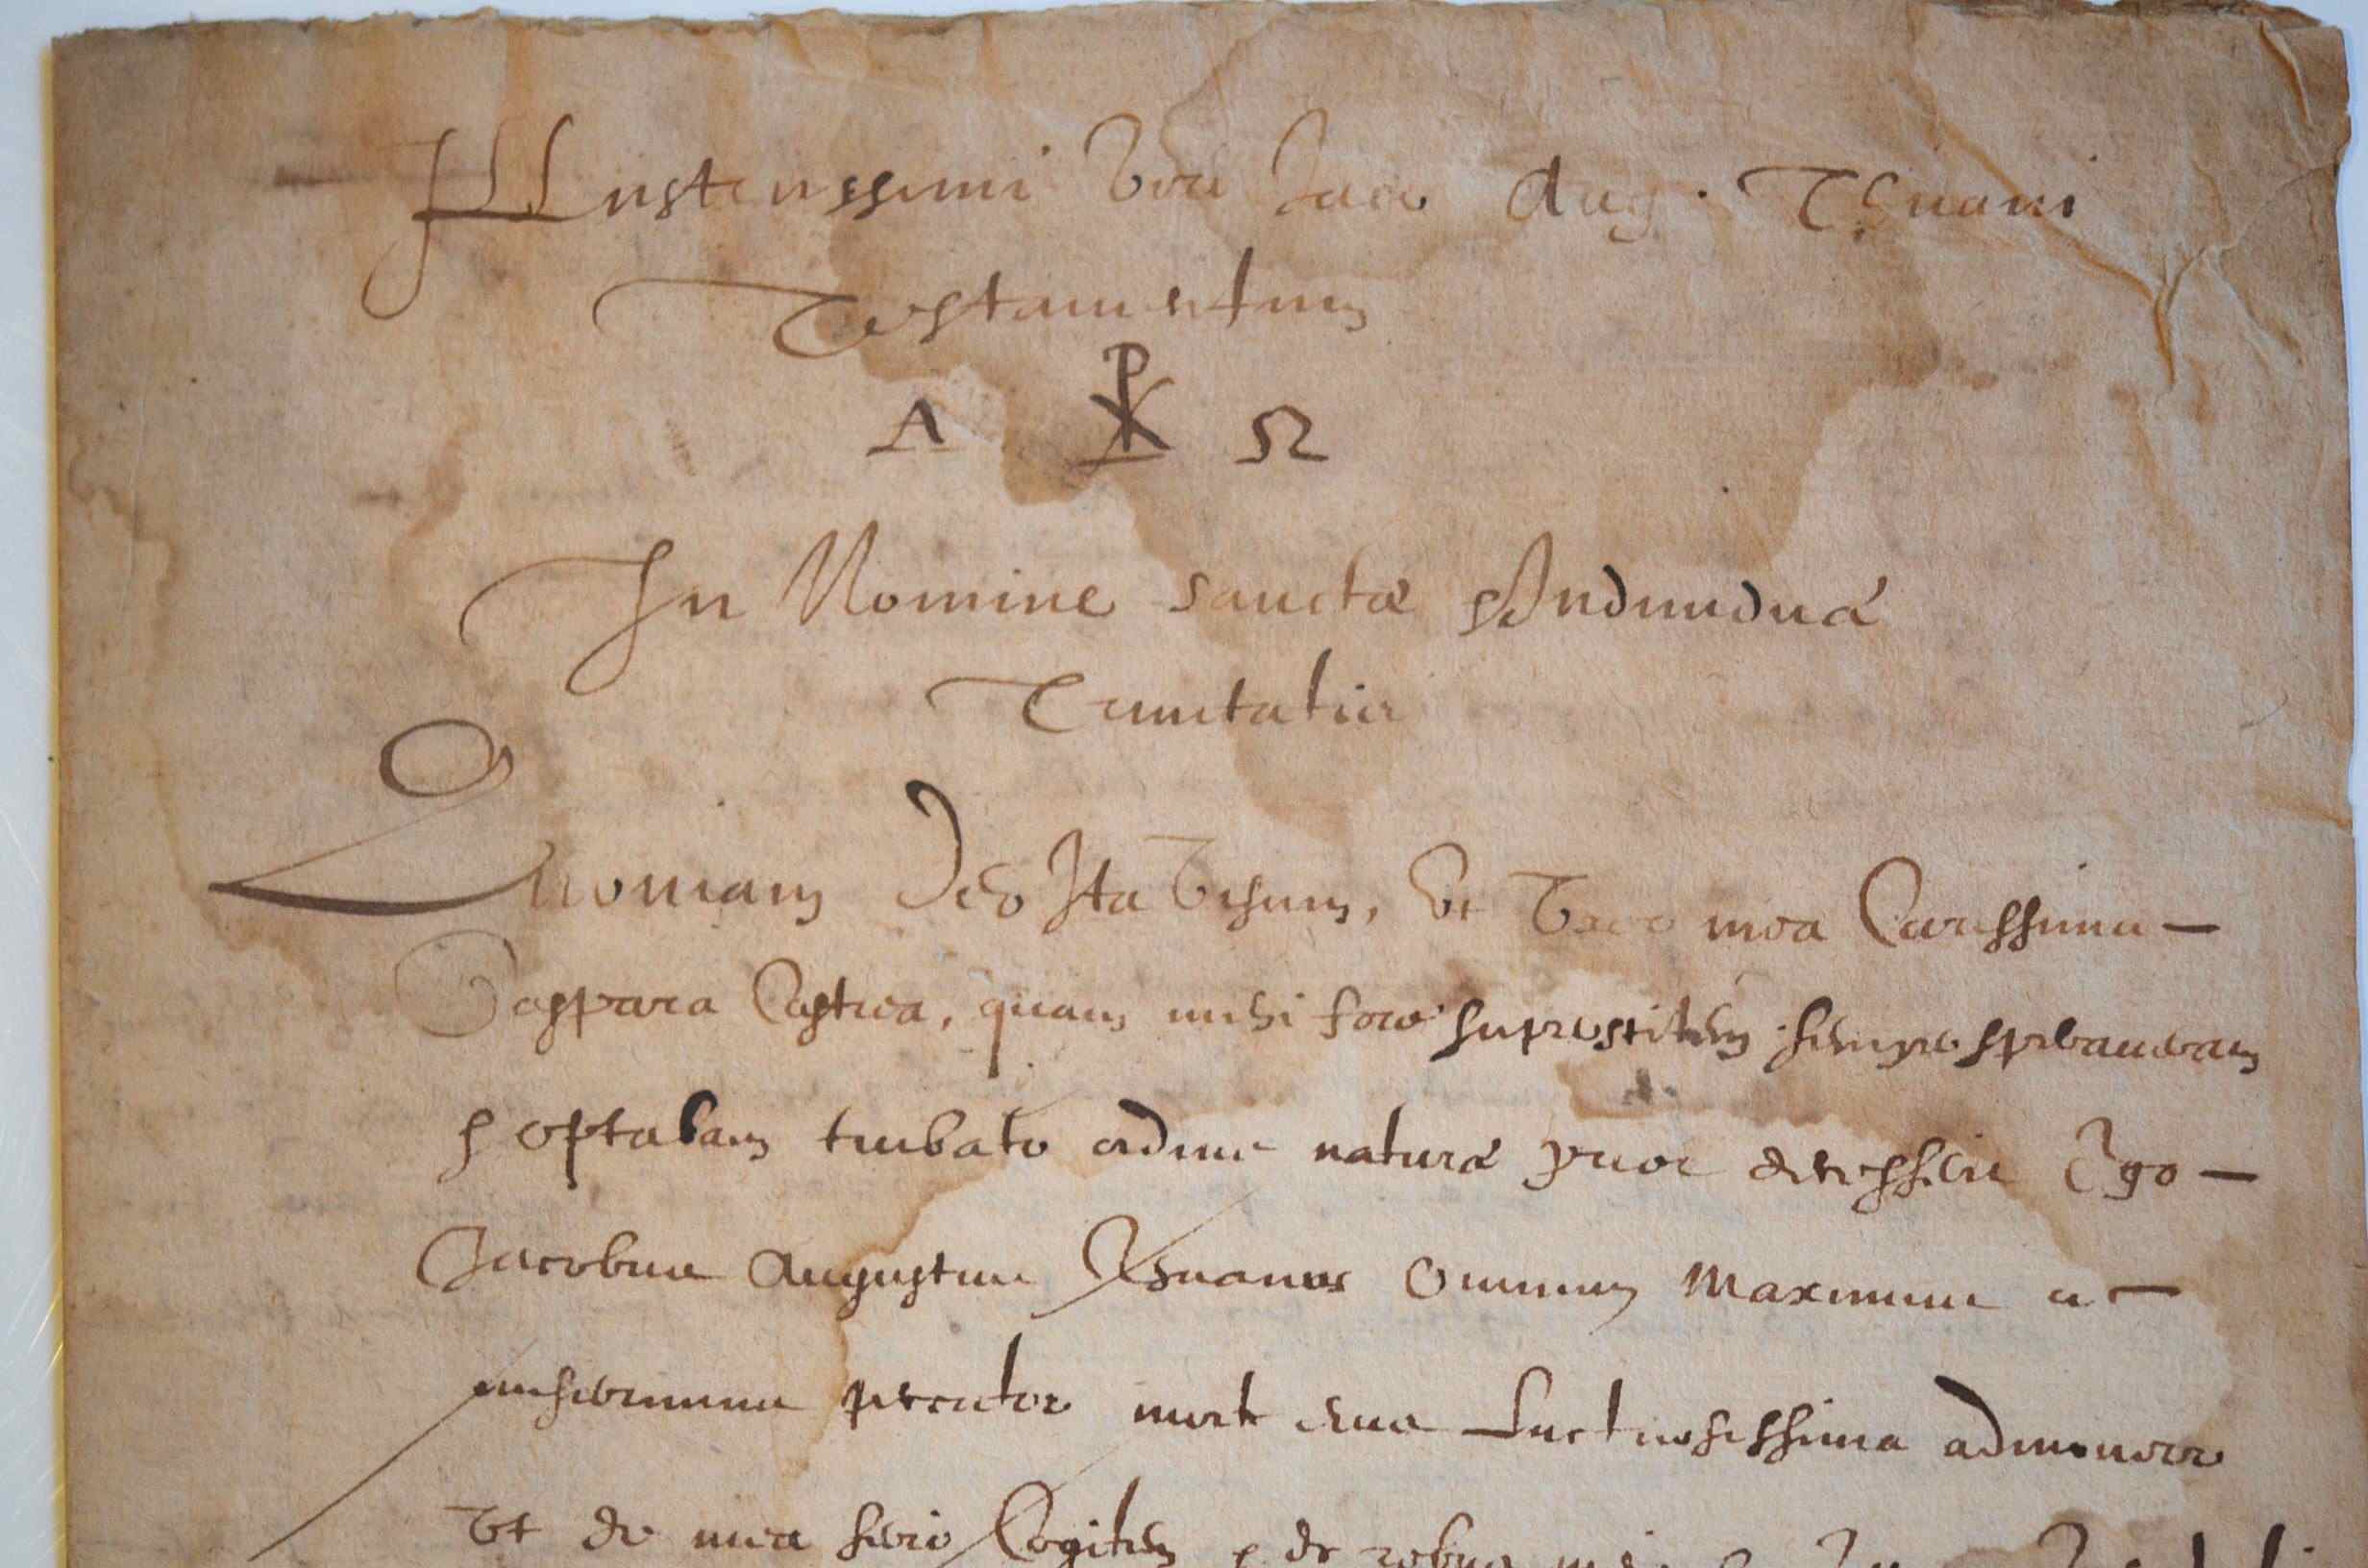 Illustrissimi Viri Jaco Aug. Thuani
Testamentum
Α ☧ Ω
In Nomine sanctæ & Individuæ
Trinitatis
Quoniam Deo Ita Visum, Ut Uxor mea Carissima —
Gaspara Castrea, quam mihi fore superstitem semper speraveram
& optabam turbato ordine naturæ prior decesserit Ego —
Jacobus Augustus Thuanus Omnium Maximus ac —
miserrimus peccator morte eius Luctuosissima admoneor
Ut de mea serio Cogitem & de rebus